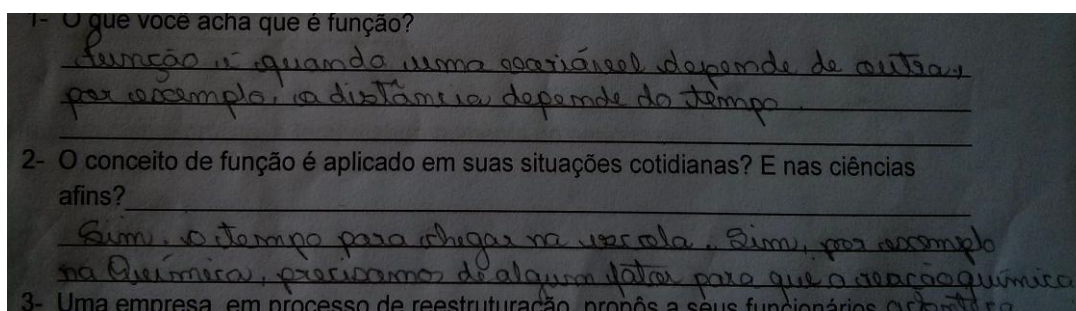 1- O que você acha que é função?
função é quando uma variável depende de outra,
por exemplo, a distância depende do tempo.
2- O conceito de função é aplicado em suas situações cotidianas? E nas ciências
afins?
Sim. o tempo para chegar na escola. Sim, por exemplo
na Química, precisamos de algum fator para que a reação química
3- Uma empresa, em processo de reestruturação, propôs a seus funcionários aconteça